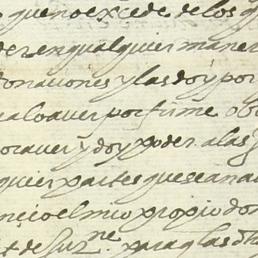 que no excede de los q
der en qualquier maner
onaciones y las doy por
aloaver por firme o
oraver y doy poder a las
quier partes que sean a
ncio el mio propio do
t de Jur.ne para q las dh